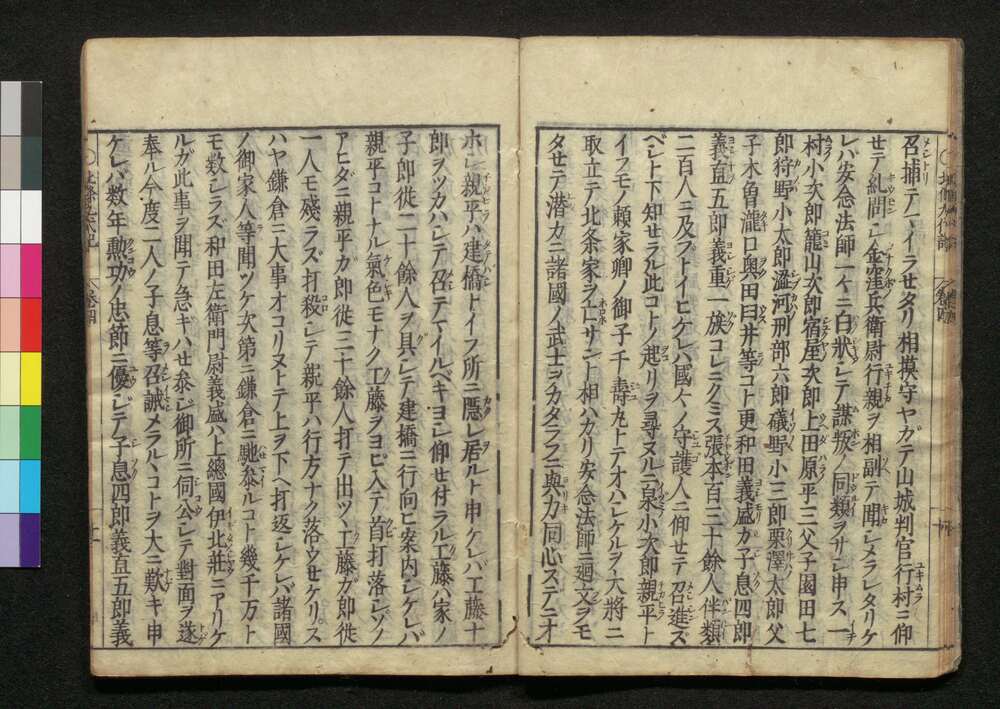 召捕テマイラセタリ相摸守ヤガテ山城判官行村ニ仰
セテ糺問シ金窪兵衛尉行親ヲ相副テ聞シメラレタリケ
レバ安念法師一々ニ白状シテ謀叛ノ同類ヲサシ申ス一
村小次郎籠山次郎宿屋次郎上田原平三父子園田七
郎狩野小太郎澁河刑部六郎礒野小三郎栗澤太郎父
子木曽瀧口奥田臼井等コト更和田義盛カ子息四郎
義直五郎義重一族コレニクミス張本百三十餘人伴類
二百人ニ及ブトイヒケレハ國々ノ守護人ニ仰セテ召進ズ
ベシト下知セラル此コトノ起リヲ尋ヌルニ泉小次郎親平ト
イフモノ頼家卿ノ御子千壽丸トテオハシケルヲ大將ニ
取立テ北条家ヲ亡サント相ハカリ安念法師ニ廻文ヲモ
タせテ潜カニ諸國ノ武士ヲカタラフニ與力同心ステニオ
ホシ親平ハ建橋トイフ所ニ隱レ居ルト申ケレバ工藤十
郎ヲツカハシテ召テマイルベキヨシ仰セ付ラル工藤ハ家ノ
子郎従二十餘人ヲ具シテ建橋ニ行向ヒ案内シケレバ
親平コトナル氣色モナク工藤ヲヨビ入テ首打落シソノ
アヒダニ親平ガ郎従三十餘人打テ出ツヽ工藤ガ郎従
一人モ殘ラズ打殺シテ親平ハ行方ナク落ウせケリス
ハヤ鎌倉ニ大事オコリヌトテ上ヲ下ヘ打返シケレバ諸國
ノ御家人等聞ツケ次第ニ鎌倉ニ馳参ルコト幾千万ト
モ数シラズ和田左衛門尉義盛ハ上總國伊北莊ニアリケ
ルガ此事ヲ聞テ急ギハせ参ジ御所ニ伺公シテ對面ヲ遂
奉ル今度二人ノ子息等召誡メラルヽコトヲ大ニ歎キ申
ケレバ数年勲功ノ忠節ニ優シテ子息四郎義直五郎義